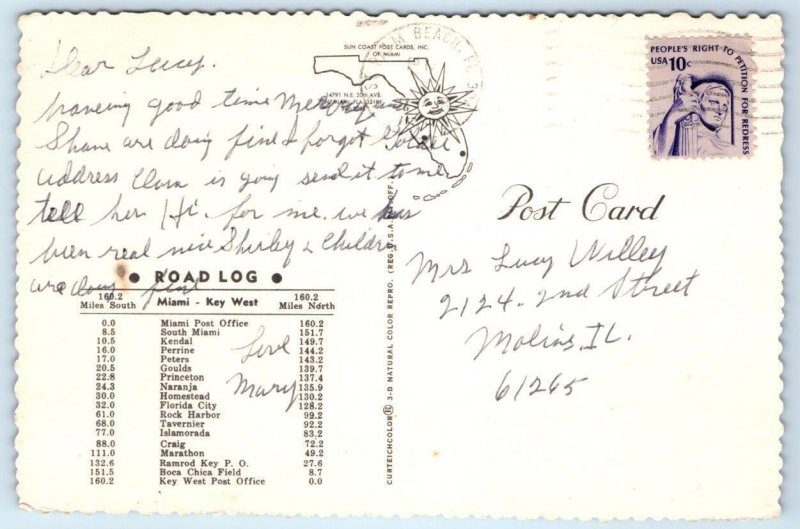 SUN COAST POST CARDS, INC.
OF MIAMI
14791 N.E. 20th AVE.
BEACH, FL
PEOPLE'S RIGHT TO PETITION FOR REDRESS
USA 10c
Dear Lucy.
haveing good time and
Shane are doing fine I forgot
address Clara is going send it to me
tell her Hi. for me. we has
been real nice Shirley & Children
are doing fine
Love
Mary
ROAD LOG
160.2 Miami - Key West 160.2
Miles South Miles North
0.0 Miami Post Office 160.2
8.5 South Miami 151.7
10.5 Kendal 149.7
16.0 Perrine 144.2
17.0 Peters 143.2
20.5 Goulds 139.7
22.8 Princeton 137.4
24.3 Naranja 135.9
30.0 Homestead 130.2
32.0 Florida City 128.2
61.0 Rock Harbor 99.2
68.0 Tavernier 92.2
77.0 Islamorada 83.2
88.0 Craig 72.2
111.0 Marathon 49.2
132.6 Ramrod Key P. O. 27.6
151.5 Boca Chica Field 8.7
160.2 Key West Post Office 0.0
CURTEICHCOLOR® 3-D NATURAL COLOR REPRO. (REG. U.S.A. PAT. OFF.)
Post Card
Mrs Lucy Willey
2124-2nd Street
Moline, IL.
61265